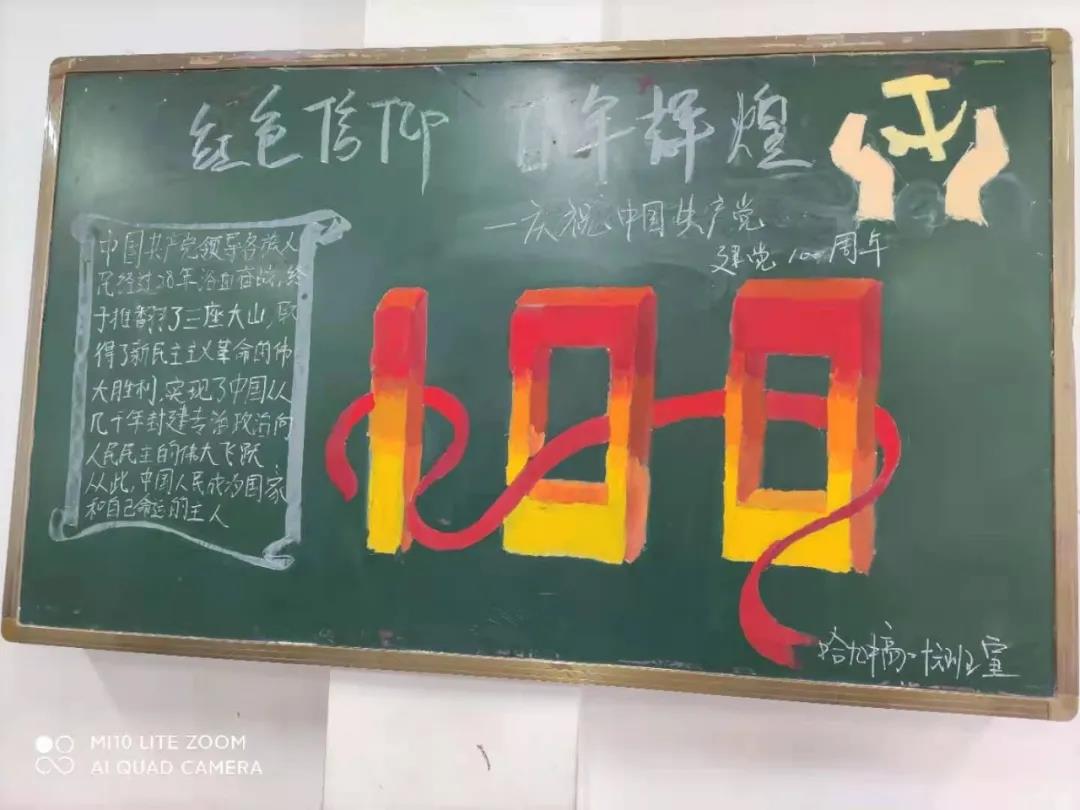 红色信仰 百年辉煌
—庆祝中国共产党
建党100周年
中国共产党领导各族人
民经过28年浴血奋战,终
于推翻了三座大山,取
得了新民主主义革命的伟
大胜利,实现了中国从
几千年封建专治政治向
人民民主的伟大飞跃
从此,中国人民成为国家
和自己命运的主人
100
哈九中高一
班宣
MI10 LITE ZOOM
AI QUAD CAMERA